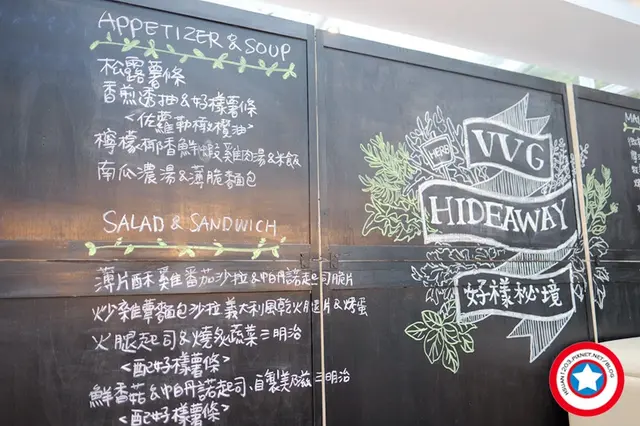 APPETIZER & SOUP
松露薯條
香煎透抽&好樣薯條
<佐羅勒橄欖油>
檸檬椰香鮮蝦雞肉湯&米飯
南瓜濃湯&薄脆麵包
SALAD & SANDWICH
薄片酥雞番茄沙拉&帕丹諾起司脆片
炒雞蕈麵包沙拉義大利風乾火腿片&燻蛋
火腿起司&燒炙蔬菜三明治
<配好樣薯條>
鮮香菇&帕丹諾起司、自製美乃滋三明治
<配好樣薯條>
HERE
VVG
HIDEAWAY
好樣秘境
MA
HSUAN1203.PIXNET.NET/BLOG